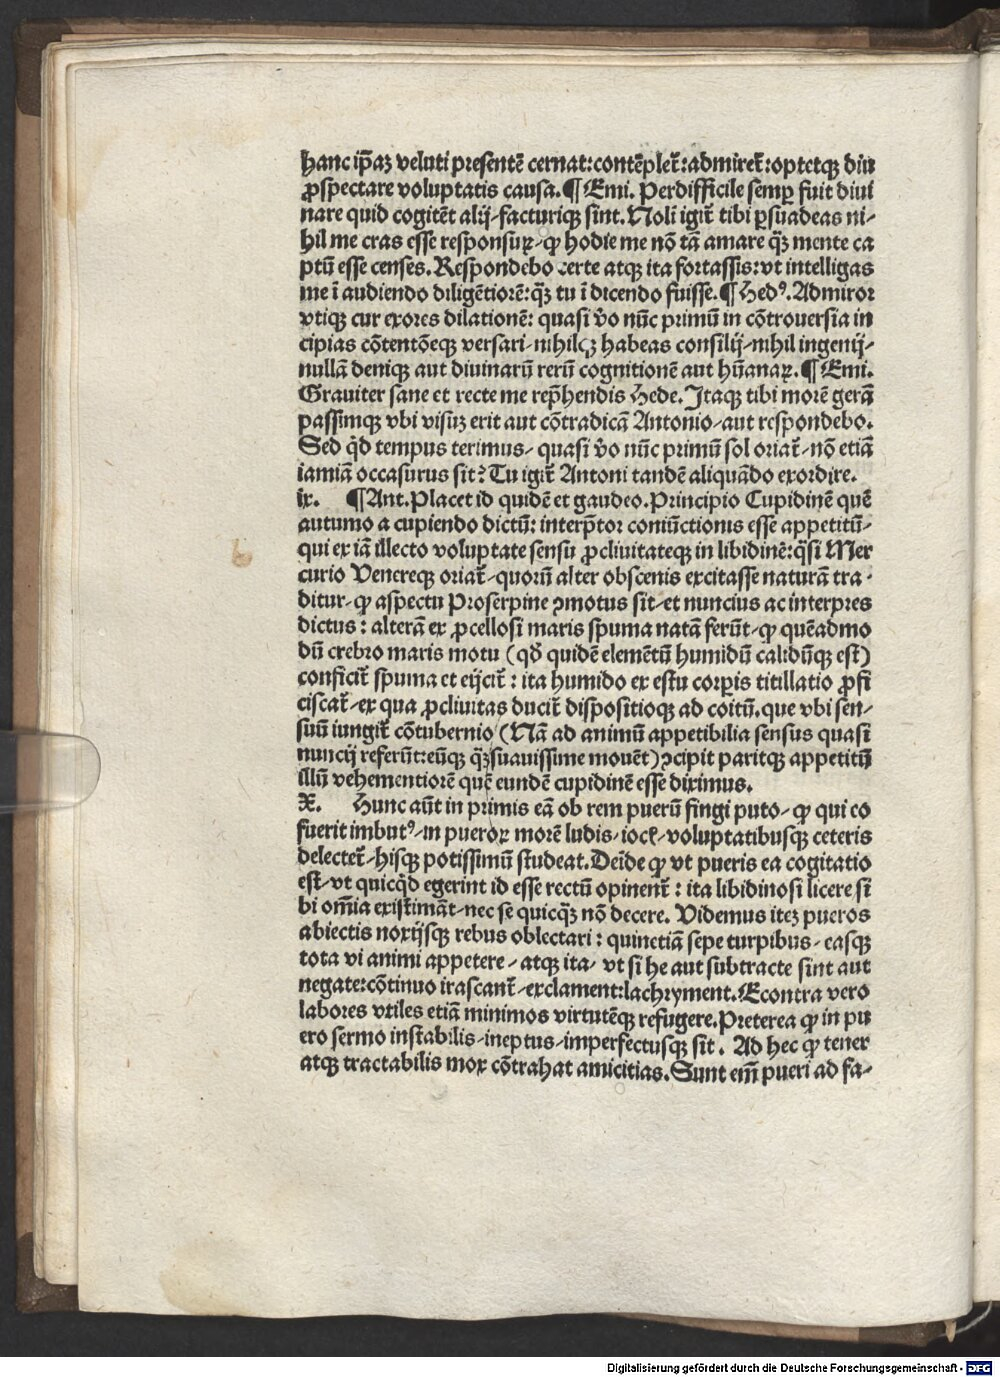 hanc ip̄aꝫ veluti presentē cernat:contēplet̄:admiret̄:optetqꝫ diu
ꝓspectare voluptatis causa.¶ Emi. Perdifficile semꝑ fuit diui
nare quid cogitēt alij-facturiqꝫ sint.Noli igit̄ tibi ꝑsuadeas ni-
hil me cras esse responsuꝝ-ꝙ hodie me nō tā amare qꝫ̄ mente ca
ptū esse censes.Respondebo certe atqꝫ ita fortassis:vt intelligas
me ī audiendo diligētiorē:qꝫ̄ tu ī dicendo fuisse.¶ Hedꝰ.Admiror
vtiqꝫ cur exores dilationē: quasi v̄o nūc primū in cōtrouersia in
cipias cōtentōeqꝫ versari-nihilqꝫ habeas consilij-nihil ingenij-
nullā denique aut diuinarū rerū cognitionē aut hūanaꝝ.¶ Emi.
Grauiter sane et recte me rep̄hendis Hede.Itaqꝫ tibi morē gerā
passimqꝫ vbi visuꝫ erit aut cōtradicā Antonio-aut respondebo.
Sed qd̄ tempus terimus-quasi v̄o nūc primū sol oriat̄-nō etiā
iamiā occasurus sit? Tu igit̄ Antoni tandē aliquādo exordire.
ix. ¶Ant.Placet id quidē et gaudeo.Principio Cupidinē quē
autumo a cupiendo dictū: interp̄tor coniūctionis esse appetitū-
qui ex iā illecto voluptate sensu ꝓcliuitateqꝫ in libidinē:q̄si Mer
curio Venereqꝫ oriat̄-quorū alter obscenis excitasse naturā tra-
ditur-ꝙ aspectu Proserpine ꝯmotus sit-et nuncius ac interpres
dictus: alterā ex ꝓcellosi maris spuma natā ferūt-ꝙ quēadmo
dū crebro maris motu (qd̄ quidē elemētū humidū calidūqꝫ est)
conficit̄ spuma et eijcit̄: ita humido ex estu corꝑis titillatio ꝓfi
ciscat̄-ex qua ꝓcliuitas ducit̄ dispositioqꝫ ad coitū.que vbi sen-
suū iungit̄ cōtubernio (Nā ad animū appetibilia sensus quasi
nuncij referūt:eūqꝫ qꝫ̄suauissime mouēt) ꝯcipit paritqꝫ appetitū
illū vehementiorē quē eundē cupidinē esse diximus.
X. Hunc aūt in primis eā ob rem puerū fingi puto-ꝙ qui eo
fuerit imbutꝰ-in pueroꝝ morē ludis-iocꝭ-voluptatibusqꝫ ceteris
delectet̄-hisqꝫ potissimū studeat.Deīde ꝙ vt pueris ea cogitatio
est-vt quicqd̄ egerint id esse rectū opinent̄: ita libidinosi licere si
bi om̄ia existimāt-nec se quicqꝫ̄ nō decere. Videmus iteꝫ pueros
abiectis noxijsqꝫ rebus oblectari: quinetiā sepe turpibus-easqꝫ
tota vi animi appetere-atqꝫ ita-vt si he aut subtracte sint aut
negate:cōtinuo irascant̄-exclament:lachryment.Econtra vero
labores vtiles etiā minimos virtutēqꝫ refugere.Preterea ꝙ in pu
ero sermo instabilis-ineptus-imperfectusqꝫ sit. Ad hec ꝙ tener
atqꝫ tractabilis mox cōtrahat amicitias.Sunt em̄ pueri ad fa-
Digitalisierung gefördert durch die Deutsche Forschungsgemeinschaft - DFG